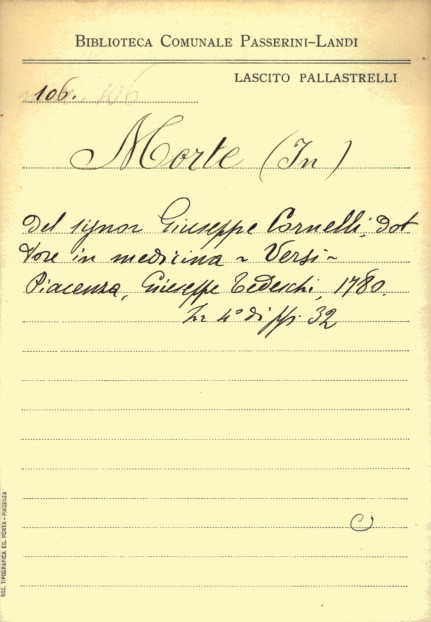 BIBLIOTECA COMUNALE PASSERINI-LANDI
LASCITO PALLASTRELLI
106.
Morte (In)
del signor Giuseppe Cornelli, dot
tore in medicina ~ Versi ~
Piacenza, Giuseppe Tedeschi, 1780.
In 4º di pp. 32
SOC. TIPOGRAFICA ED. PORTA - PIACENZA